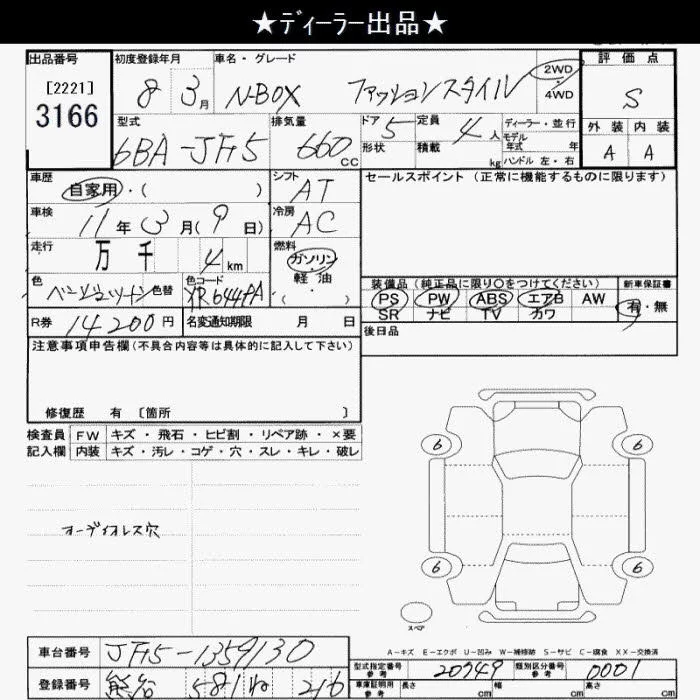 ★ディーラー出品★
出品番号
[2221]
3166
初度登録年月
8 3月
車名・グレード
N-BOX ファッションスタイル
2WD
・
4WD
評価点
S
外装 内装
A A
型式
6BA-JF5
排気量
660cc
ドア 5
形状
定員 4人
積載 kg
ディーラー・並行
モデル
年式 年
ハンドル 左・右
車歴
自家用・( )
シフト
AT
セールスポイント (正常に機能するものに限ります)
車検
11年3月(9日)
冷房
AC
走行
万千 4km
燃料
ガソリン
・
軽油
( )
色
色替
色コード
YR644PA
装備品 (純正品に限り○をつけてください)
PS PW ABS エアB AW
SR ナビ TV カワ
新車保証書
有・無
R券 14200円
名変通知期限 月 日
後日品
注意事項申告欄(不具合内容等は具体的に記入して下さい)
修復歴 有 [箇所 ]
検査員
記入欄
FW キズ・飛石・ヒビ割・リペア跡・×要
内装 キズ・汚レ・コゲ・穴・スレ・キレ・破レ
オーディオレス穴
6 6
6 6
スペア
A-キズ E-エクボ U-凹み W-補修跡 S-サビ C-腐食 XX-交換済
車台番号 JF5-1359130
登録番号 熊谷 581 ね 216
型式指定番号
参考
20749
類別区分番号
参考
0001
車庫証明用
参考
長さ cm 幅 cm 高さ cm